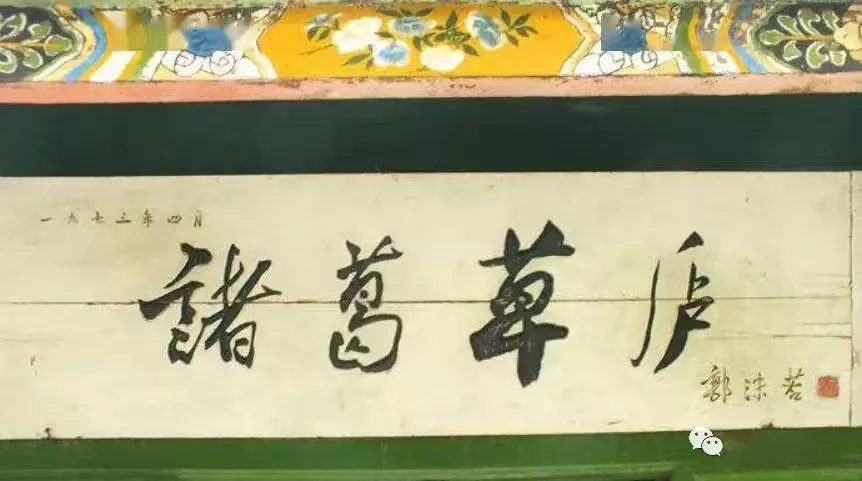 一九七三年四月
諸葛草庐
郭沫若